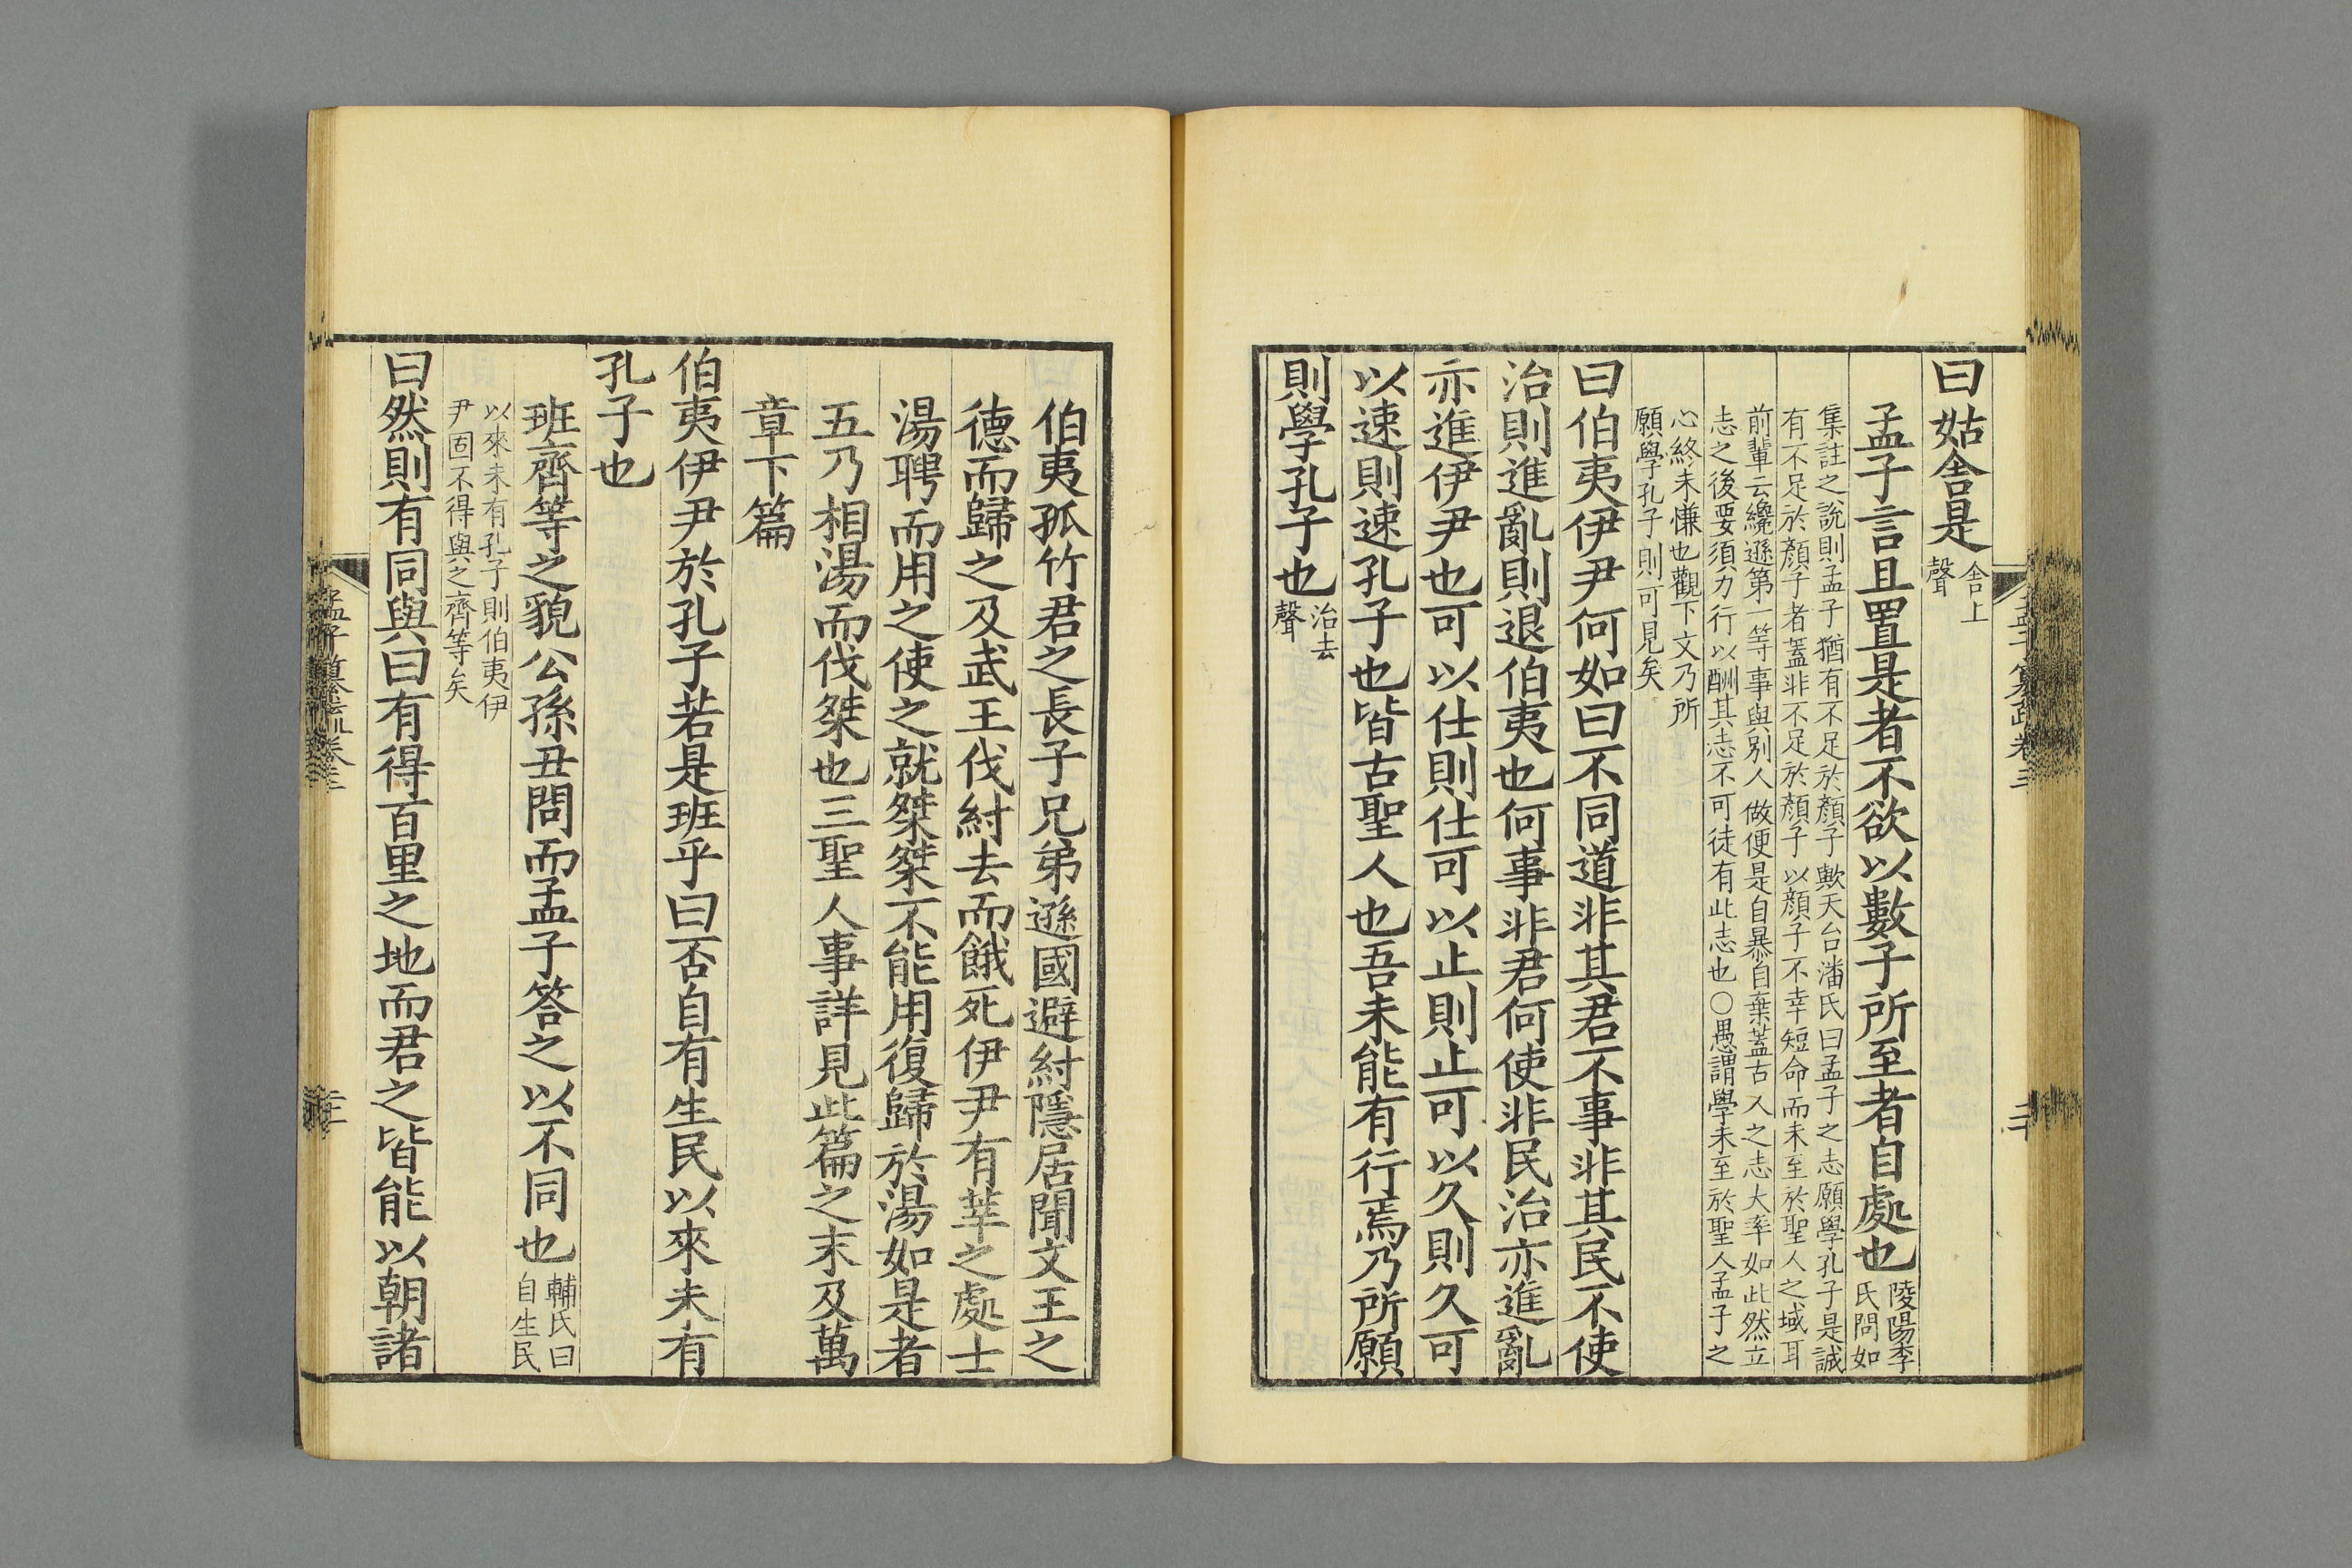 曰姑舍是舍上聲
孟子言且置是者不欲以數子所至者自處也陵陽李氏問如
集註之說則孟子猶有不足於顏子歟天台潘氏曰孟子之志願學孔子是誠
有不足於顏子者蓋非不足於顏子以顏子不幸短命而未至於聖人之域耳
前輩云纔遜第一等事與別人做便是自暴自棄蓋古人之志大率如此然立
志之後要須力行以酬其志不可徒有此志也○愚謂學未至於聖人孟子之
心終未慊也觀下文乃所
願學孔子則可見矣
曰伯夷伊尹何如曰不同道非其君不事非其民不使
治則進亂則退伯夷也何事非君何使非民治亦進亂
亦進伊尹也可以仕則仕可以止則止可以久則久可
以速則速孔子也皆古聖人也吾未能有行焉乃所願
則學孔子也治去聲
伯夷孤竹君之長子兄弟遜國避紂隱居聞文王之
德而歸之及武王伐紂去而餓死伊尹有莘之處士
湯聘而用之使之就桀桀不能用復歸於湯如是者
五乃相湯而伐桀也三聖人事詳見此篇之末及萬
章下篇
伯夷伊尹於孔子若是班乎曰否自有生民以來未有
孔子也
班齊等之貌公孫丑問而孟子答之以不同也輔氏曰自生民
以來未有孔子則伯夷伊
尹固不得與之齊等矣
曰然則有同與曰有得百里之地而君之皆能以朝諸